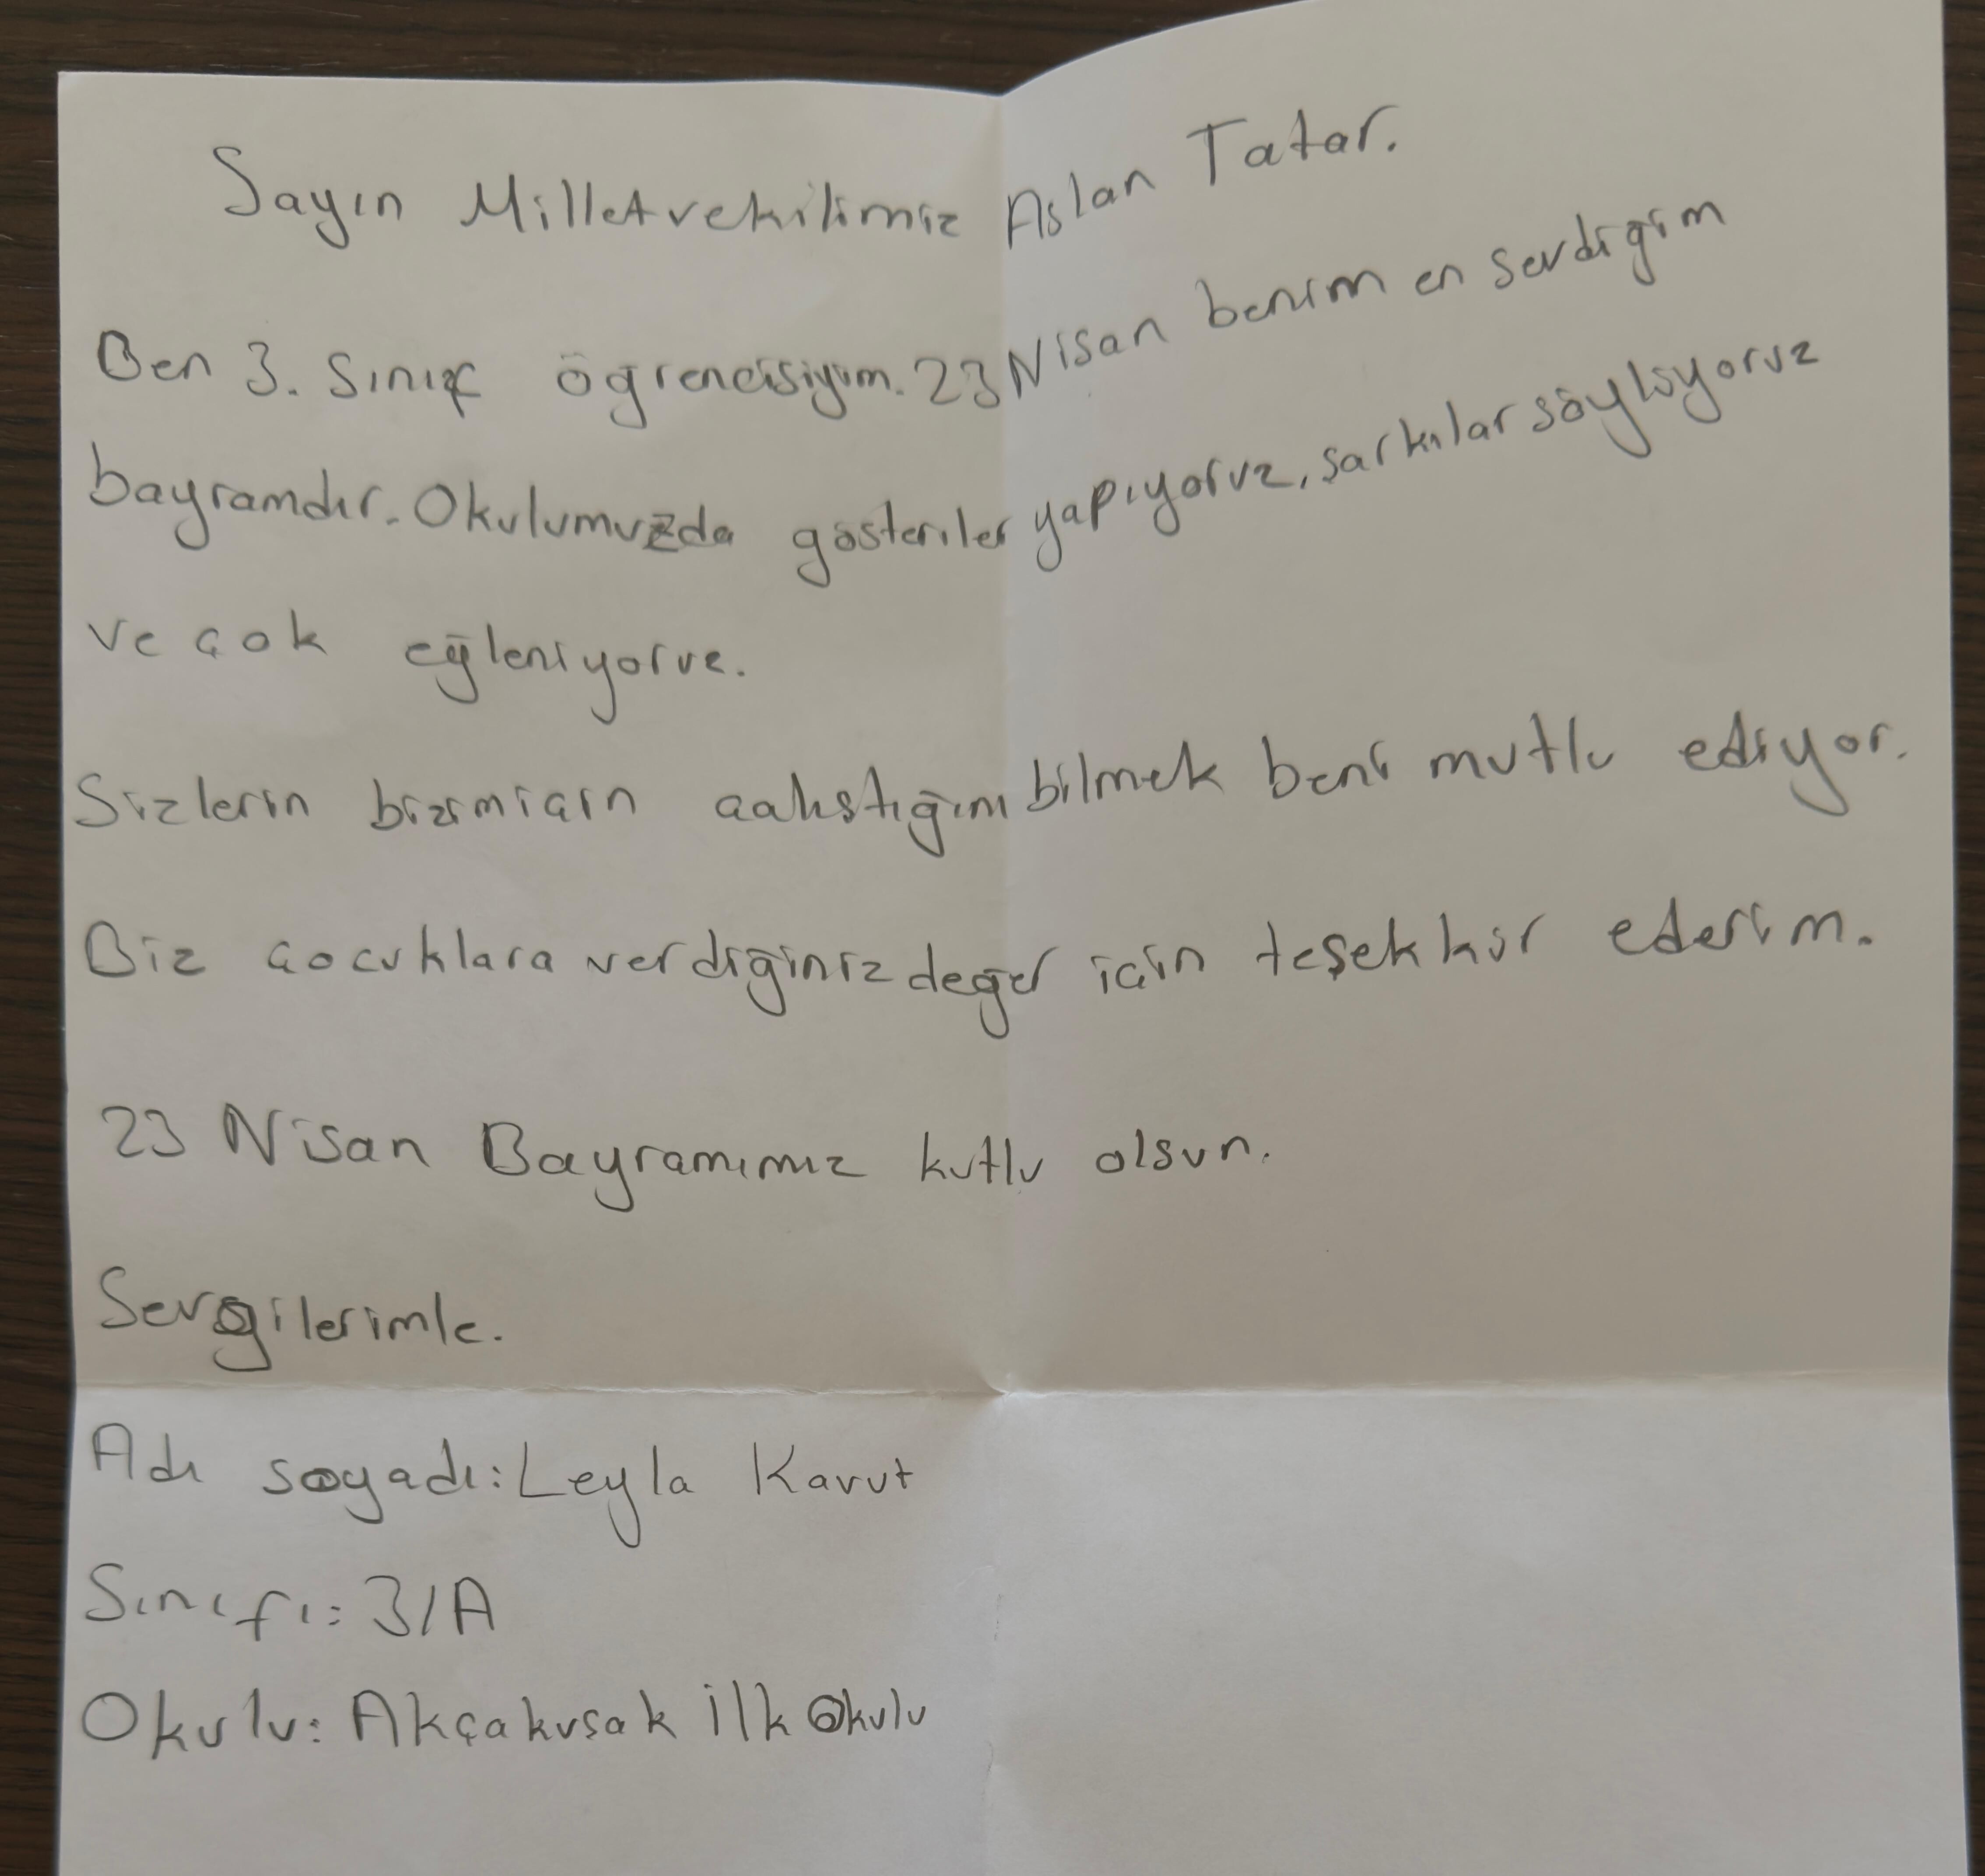 Sayın Milletvekilimiz Aslan Tatar.
Ben 3. sınıf öğrencisiyim. 23 Nisan benim en sevdiğim
bayramdır. Okulumuzda gösteriler yapıyoruz, şarkılar söylüyoruz
ve çok eğleniyoruz.
Sizlerin bizim için çalıştığını bilmek beni mutlu ediyor.
Biz çocuklara verdiğiniz değer için teşekkür ederim.
23 Nisan Bayramımız kutlu olsun.
Sevgilerimle.
Adı soyadı: Leyla Kavut
Sınıfı: 3/A
Okulu: Akçakuşak İlk Okulu